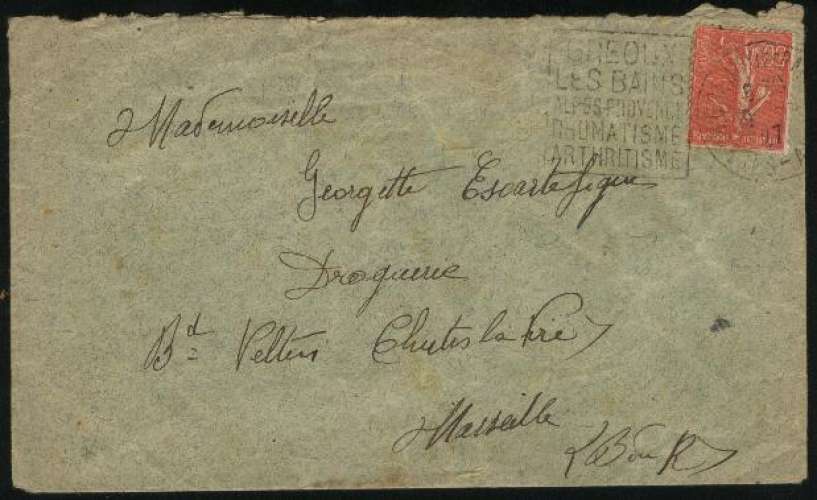 GREOUX
LES BAINS
ALPES-PROVENCE
RHUMATISME
ARTHRITISME
Mademoiselle
Georgette Escartefigue
Droguerie
Bd Velten Chutes la Vie
Marseille
B du R